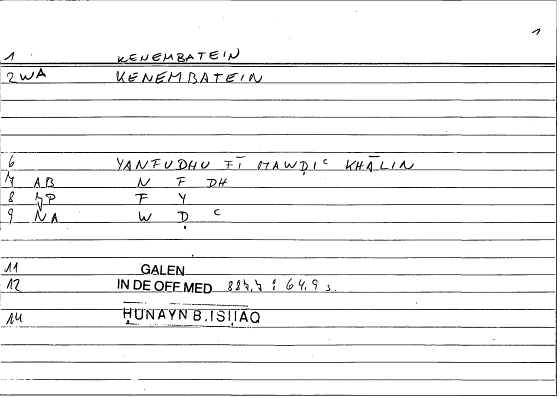 1
1 KENEMBATEIN
2 WA KENEMBATEIN
6 YANFUDHU FĪ MAWḌIᶜ KHĀLIN
7 AB N F DH
8 F Y
9 NA W Ḍ ᶜ
11 GALEN
12 IN DE OFF MED
14 ḤUNAYN B. ISḤĀQ